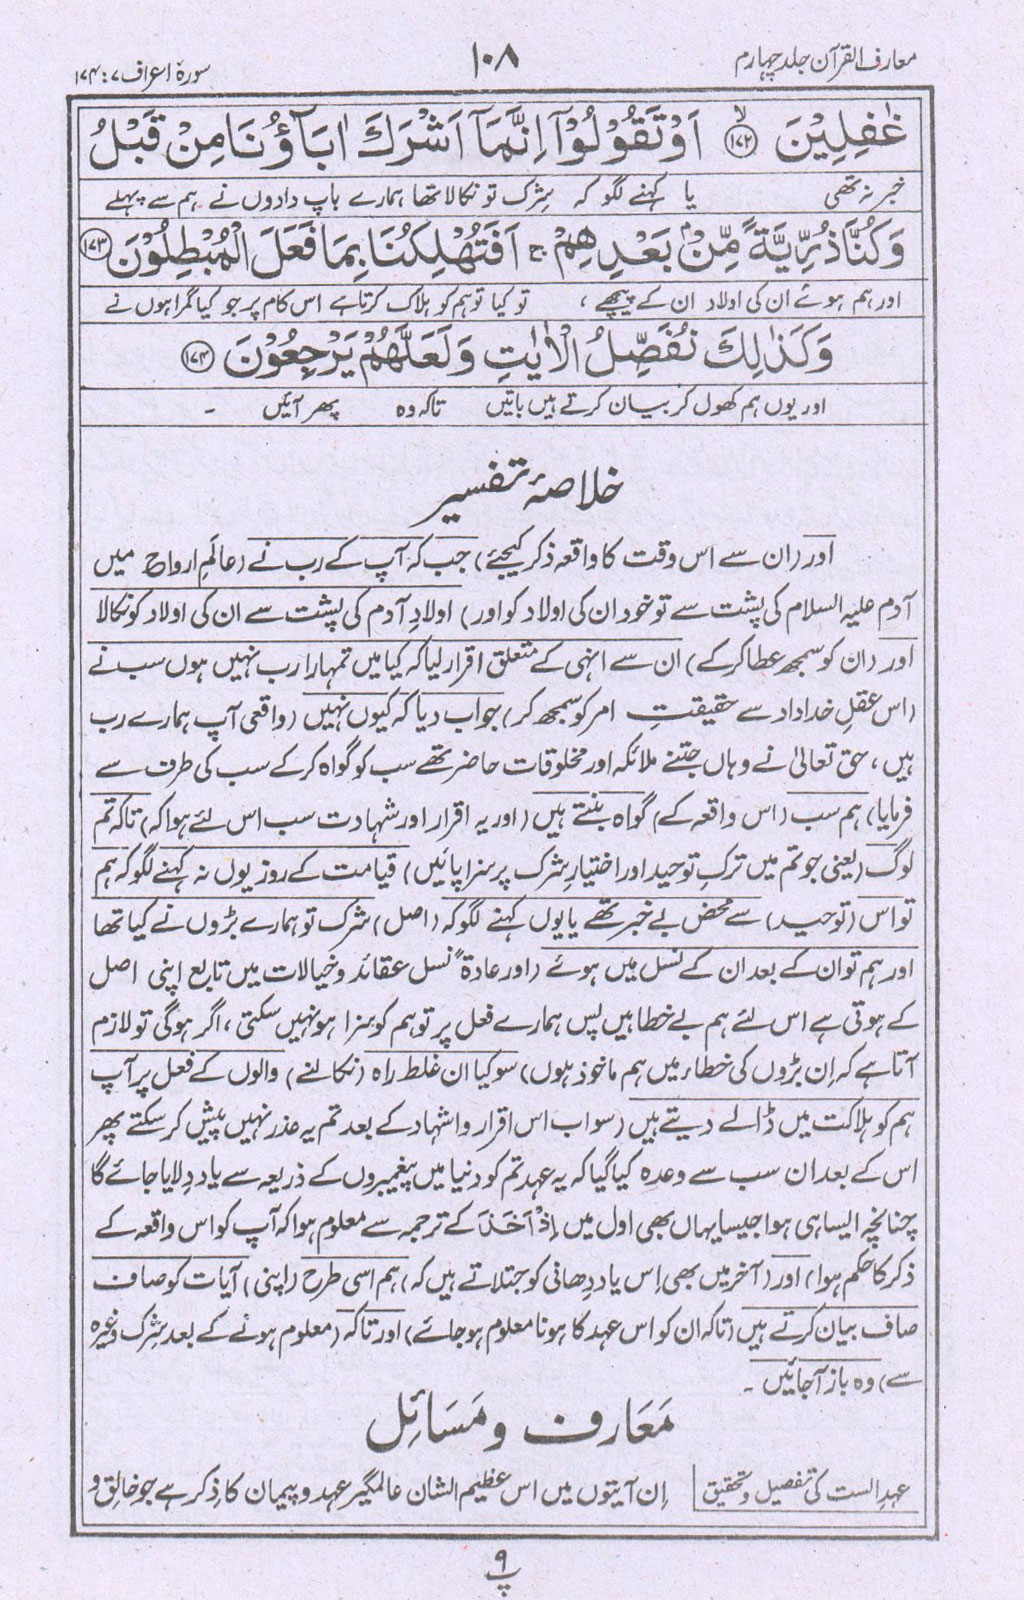 معارف القرآن جلد چہارم
۱۰۸
سورۂ اعراف ۷ : ۱۷۴
غٰفِلِیْنَ ﴿۱۷۲﴾ۙ اَوْ تَقُوْلُوْۤا اِنَّمَاۤ اَشْرَكَ اٰبَآؤُنَا مِنْ قَبْلُ
خبر نہ تھی یا کہنے لگو کہ شرک تو نکالا تھا ہمارے باپ دادوں نے ہم سے پہلے
وَكُنَّا ذُرِّیَّةً مِّنْۢ بَعْدِهِمْ ۚ اَفَتُهْلِكُنَا بِمَا فَعَلَ الْمُبْطِلُوْنَ ﴿۱۷۳﴾
اور ہم ہوئے ان کی اولاد ان کے پیچھے ، تو کیا تو ہم کو ہلاک کرتا ہے اس کام پر جو کیا گمراہوں نے
وَكَذٰلِكَ نُفَصِّلُ الْاٰیٰتِ وَلَعَلَّهُمْ یَرْجِعُوْنَ ﴿۱۷۴﴾
اور یوں ہم کھول کر بیان کرتے ہیں باتیں تاکہ وہ پھر آئیں ۔
خلاصۂ تفسیر
اور (ان سے اس وقت کا واقعہ ذکر کیجئے) جب کہ آپ کے رب نے (عالمِ ارواح میں
آدم علیہ السلام کی پشت سے تو خود ان کی اولاد کو اور) اولادِ آدم کی پشت سے ان کی اولاد کو نکالا
اور (ان کو سمجھ عطا کر کے) ان سے انہی کے متعلق اقرار لیا کہ کیا میں تمہارا رب نہیں ہوں سب نے
(اس عقلِ خداداد سے حقیقتِ امر کو سمجھ کر) جواب دیا کہ کیوں نہیں (واقعی آپ ہمارے رب
ہیں ، حق تعالیٰ نے وہاں جتنے ملائکہ اور مخلوقات حاضر تھے سب کو گواہ کر کے سب کی طرف سے
فرمایا) ہم سب (اس واقعہ کے) گواہ بنتے ہیں (اور یہ اقرار اور شہادت سب اس لئے ہوا کہ) تاکہ تم
لوگ (یعنی جو تم میں ترکِ توحید اور اختیارِ شرک پر سزا پائیں) قیامت کے روز یوں نہ کہنے لگو کہ ہم
تو اس (توحید) سے محض بے خبر تھے یا یوں کہنے لگو کہ (اصل) شرک تو ہمارے بڑوں نے کیا تھا
اور ہم تو ان کے بعد ان کے نسل میں ہوئے (اور عادۃً نسل عقائد و خیالات میں تابع اپنی اصل
کے ہوتی ہے اس لئے ہم بے خطا ہیں پس ہمارے فعل پر تو ہم کو سزا ہو نہیں سکتی ، اگر ہوگی تو لازم
آتا ہے کہ اِن بڑوں کی خطاء میں ہم ماخوذ ہوں) سو کیا ان غلط راہ (نکالنے) والوں کے فعل پر آپ
ہم کو ہلاکت میں ڈالے دیتے ہیں (سو اب اس اقرار و اشہاد کے بعد تم یہ عذر نہیں پیش کر سکتے پھر
اس کے بعد ان سب سے وعدہ کیا گیا کہ یہ عہد تم کو دنیا میں پیغمبروں کے ذریعہ سے یاد دلایا جائے گا
چنانچہ ایسا ہی ہوا جیسا یہاں بھی اول میں اِذْ اَخَذَ کے ترجمہ سے معلوم ہوا کہ آپ کو اس واقعہ کے
ذکر کا حکم ہوا) اور (آخر میں بھی اِس یاد دِھانی کو جتلاتے ہیں کہ) ہم اسی طرح (اپنی) آیات کو صاف
صاف بیان کرتے ہیں (تاکہ ان کو اس عہد کا ہونا معلوم ہو جائے) اور تاکہ (معلوم ہونے کے بعد شرک وغیرہ
سے) وہ باز آجائیں ۔
مَعَارف و مَسَائِل
عہدِ الست کی تفصیل و تحقیق
اِن آیتوں میں اس عظیم الشان عالمگیر عہد و پیمان کا ذکر ہے جو خالق و
پ ۹